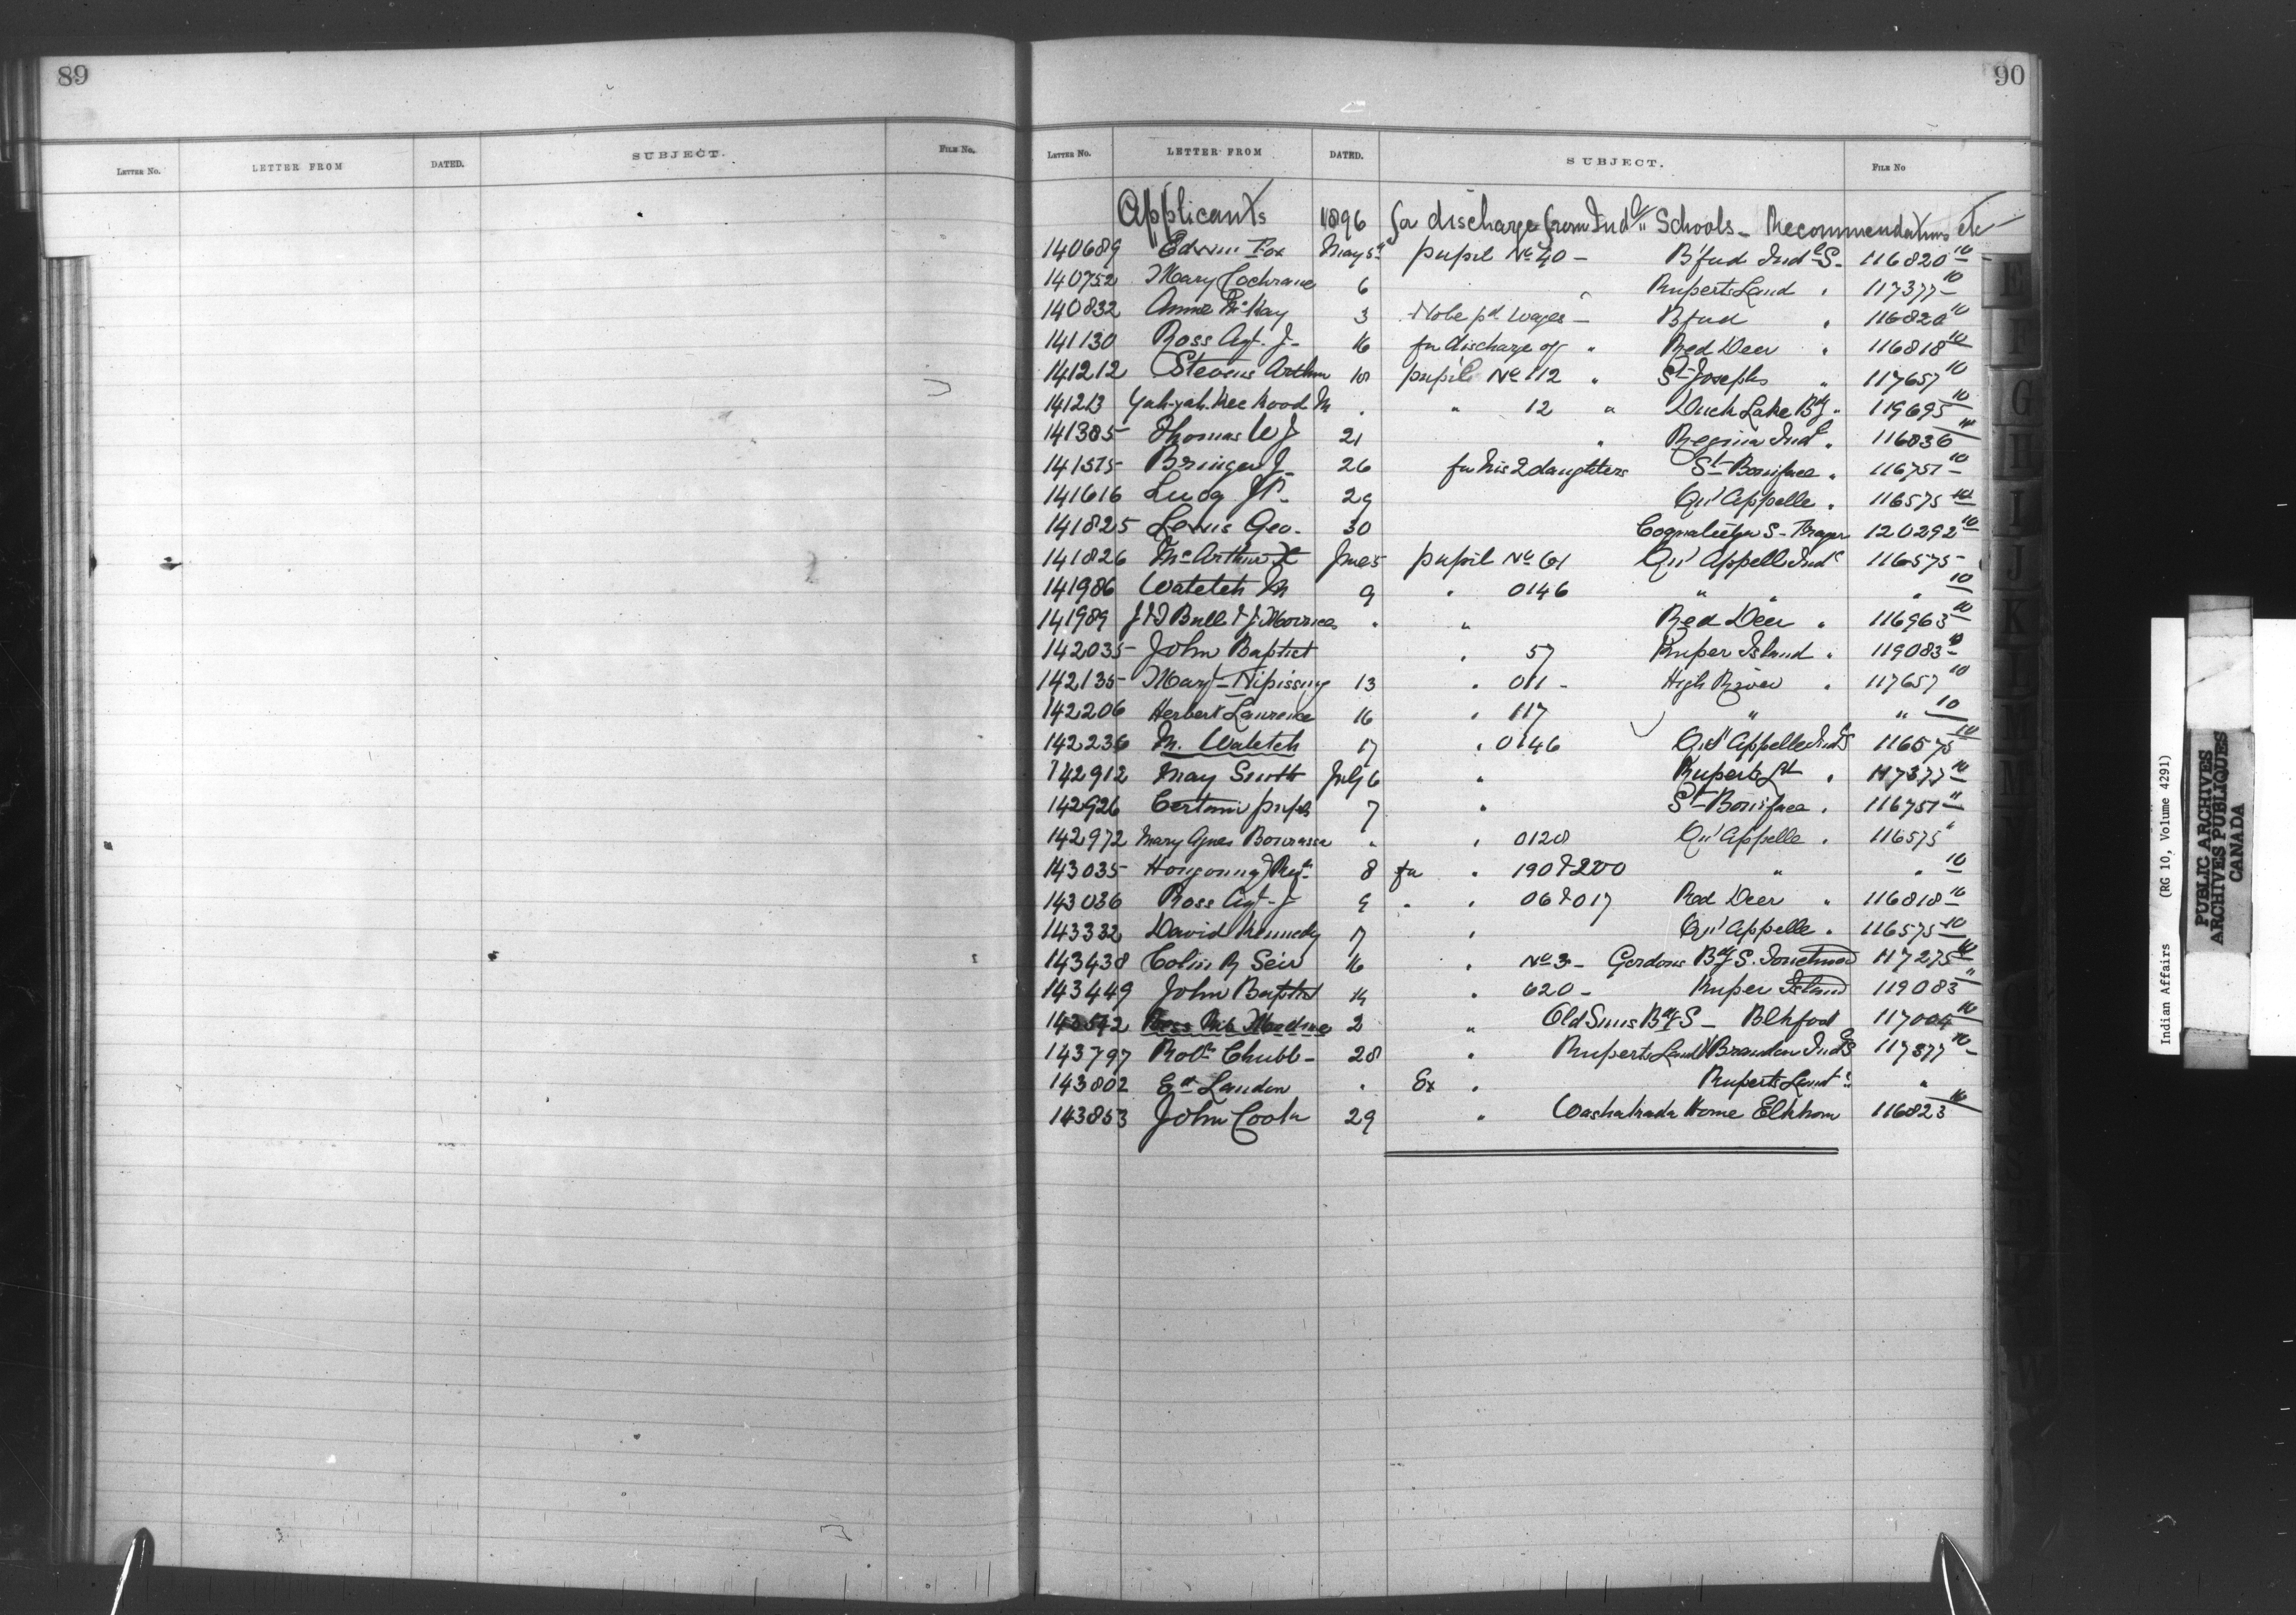 89
LETTER NO. LETTER FROM DATED. SUBJECT. FILE NO.
90
LETTER NO. LETTER FROM DATED. SUBJECT. FILE NO
Applicants 1896 for discharge from Indl Schools - Recommendations etc
140689 Edwin Fox May 5th pupil No 40 - B'ford Indl S - 116820-10
140752 Mary Cochrane 6 Ruperts Land " 117377-10
140832 Annie McKay 3 to be pd wages - B'ford " 116820-10
141130 Ross Agt. J - 16 for discharge of " Red Deer " 116818-10
141212 Stevens Arthur 18 pupil No 112 " St Josephs " 117657-10
141213 M " " 12 " Duck Lake Bdg " 119695-10
141385 Thomas W J 21 " Regina Indl " 116836-10
141515 J - 26 for his 2 daughters St Boniface " 116751-10
141616 29 Qu'Appelle " 116575-10
141825 Lewis Geo - 30 S - Fraser 120292-10
141826 McArthur June 5 pupil No 61 Qu'Appelle Indl 116575-
141986 Watetch M 9 " 0146 " " " 10
141989 Bull & " " Red Deer " 116963-10
142035 John Baptist " 57 Kuper Island " 119083-10
142135 Mary Nipissing 13 " 011 - High River " 117657-10
142206 Herbert Lawrence 16 " 117 " " 10
142236 M. Watetch 17 " 0146 Qu'Appelle Indl S 116575-10
142912 May Smith July 6 " Ruperts Ld " 117377-10
142926 Certain pupils 7 " St Boniface " 116751-"
142972 Mary Agnes Bourassa " " 0128 Qu'Appelle " 116575-"
143035 Rev. 8 for " 190 & 200 " " 10
143036 Ross Agt - J 9 " " 06 & 017 Red Deer " 116818-10
143332 David Kennedy 17 " Qu'Appelle " 116575-10
143438 Colin 16 " No 3 - Gordons Bdg S. Touchwood 117275-10
143449 John Baptist 14 " 620 - Kuper Island 119083-"
2 " Old Suns Bdg S - Blkfoot 117004-10
143797 Robt Chubb - 28 " Ruperts Land & Brandon Indl S 117377-10
143802 Ed Landon " Ex " Ruperts Land " "
143853 John Cook 29 " Washakada Home Elkhorn 116823-10
E
F
G
H
I
J
K
L
M
W
Indian Affairs (RG 10, Volume 4291)
PUBLIC ARCHIVES
ARCHIVES PUBLIQUES
CANADA